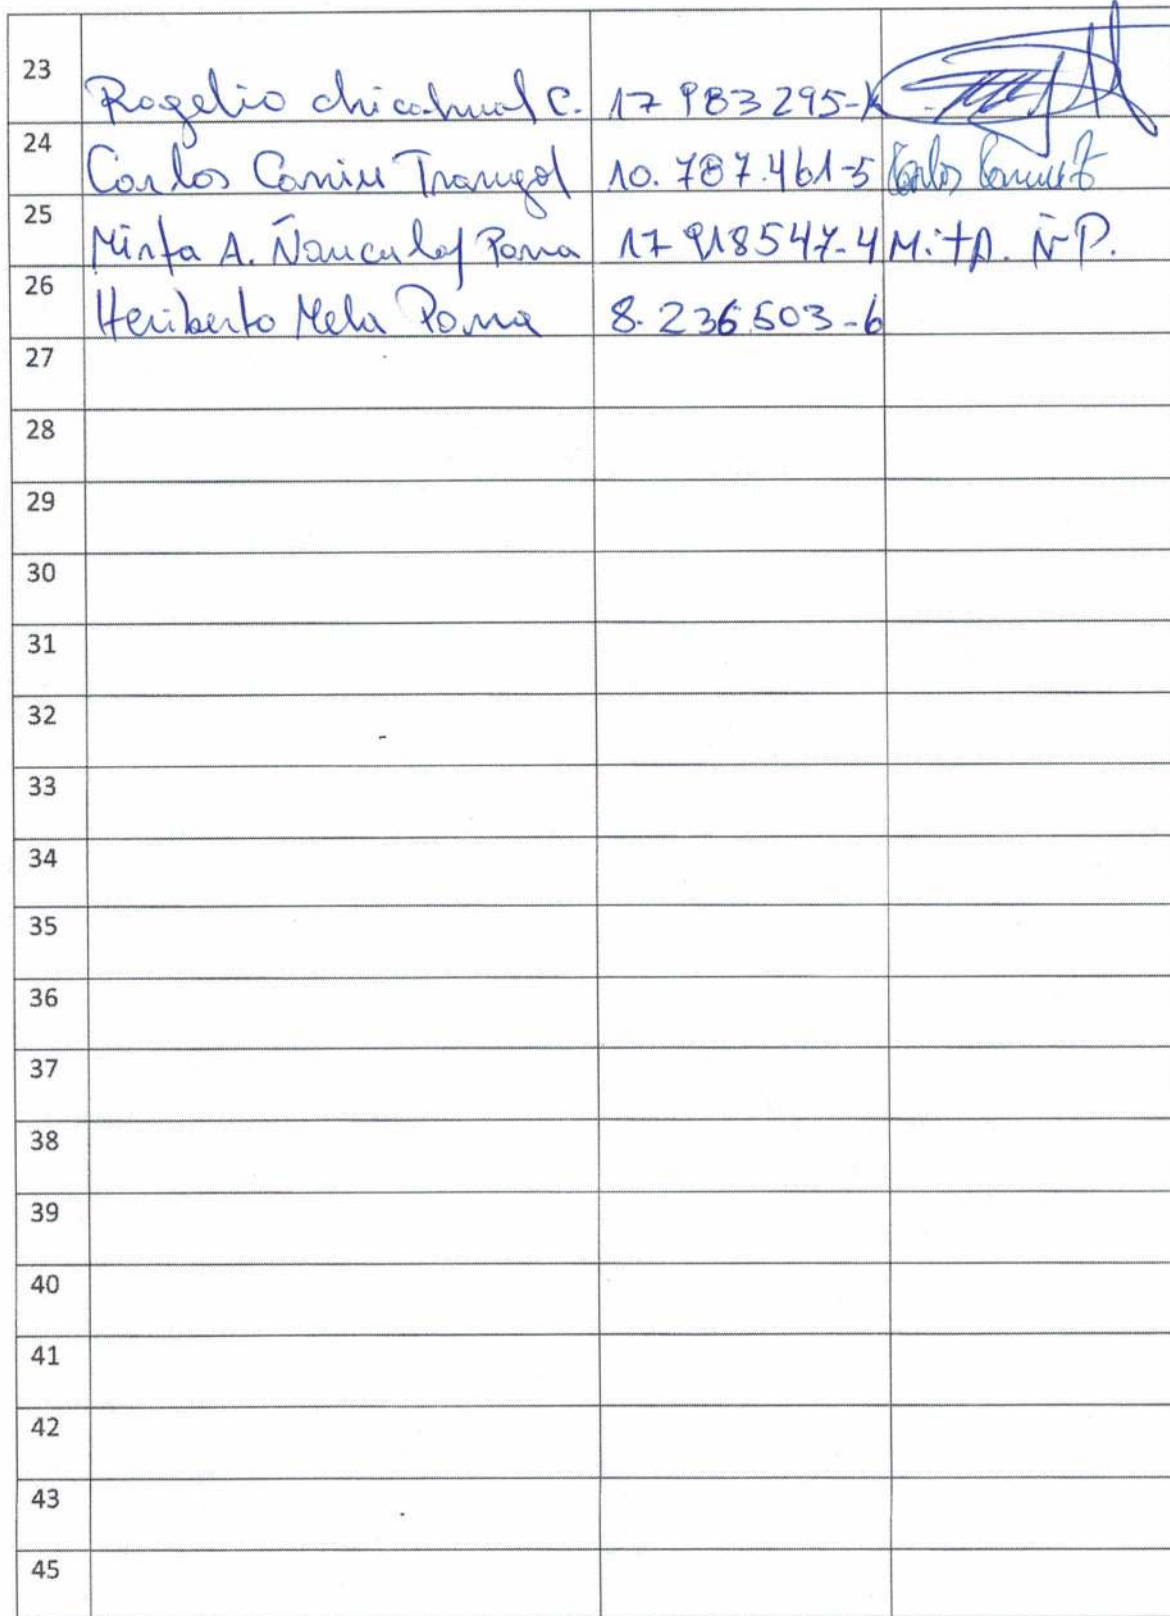 23 Rogelio chicahual C. 17 983 295-K
24 Carlos Caniu Trangol 10.787.461-5 Carlos
25 Mirta A. Ñanculef Poma 17 918547-4 M:tA. Ñ P.
26 Heriberto Mela Poma 8.236.503-6
27
28
29
30
31
32
33
34
35
36
37
38
39
40
41
42
43
45